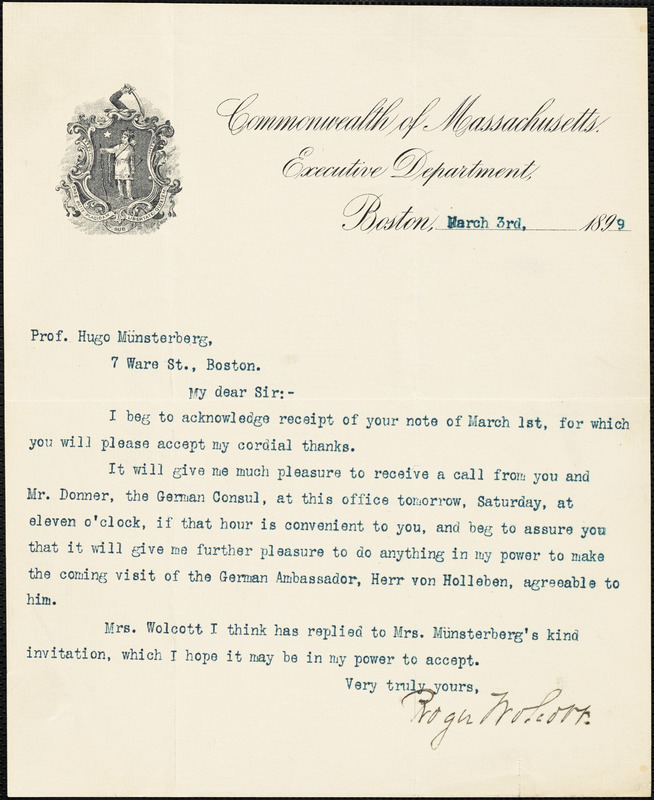 Commonwealth of Massachusetts.
Executive Department,
Boston, March 3rd, 1899
Prof. Hugo Münsterberg,
7 Ware St., Boston.
My dear Sir:-
I beg to acknowledge receipt of your note of March 1st, for which
you will please accept my cordial thanks.
It will give me much pleasure to receive a call from you and
Mr. Donner, the German Consul, at this office tomorrow, Saturday, at
eleven o'clock, if that hour is convenient to you, and beg to assure you
that it will give me further pleasure to do anything in my power to make
the coming visit of the German Ambassador, Herr von Holleben, agreeable to
him.
Mrs. Wolcott I think has replied to Mrs. Münsterberg's kind
invitation, which I hope it may be in my power to accept.
Very truly yours,
Roger Wolcott.